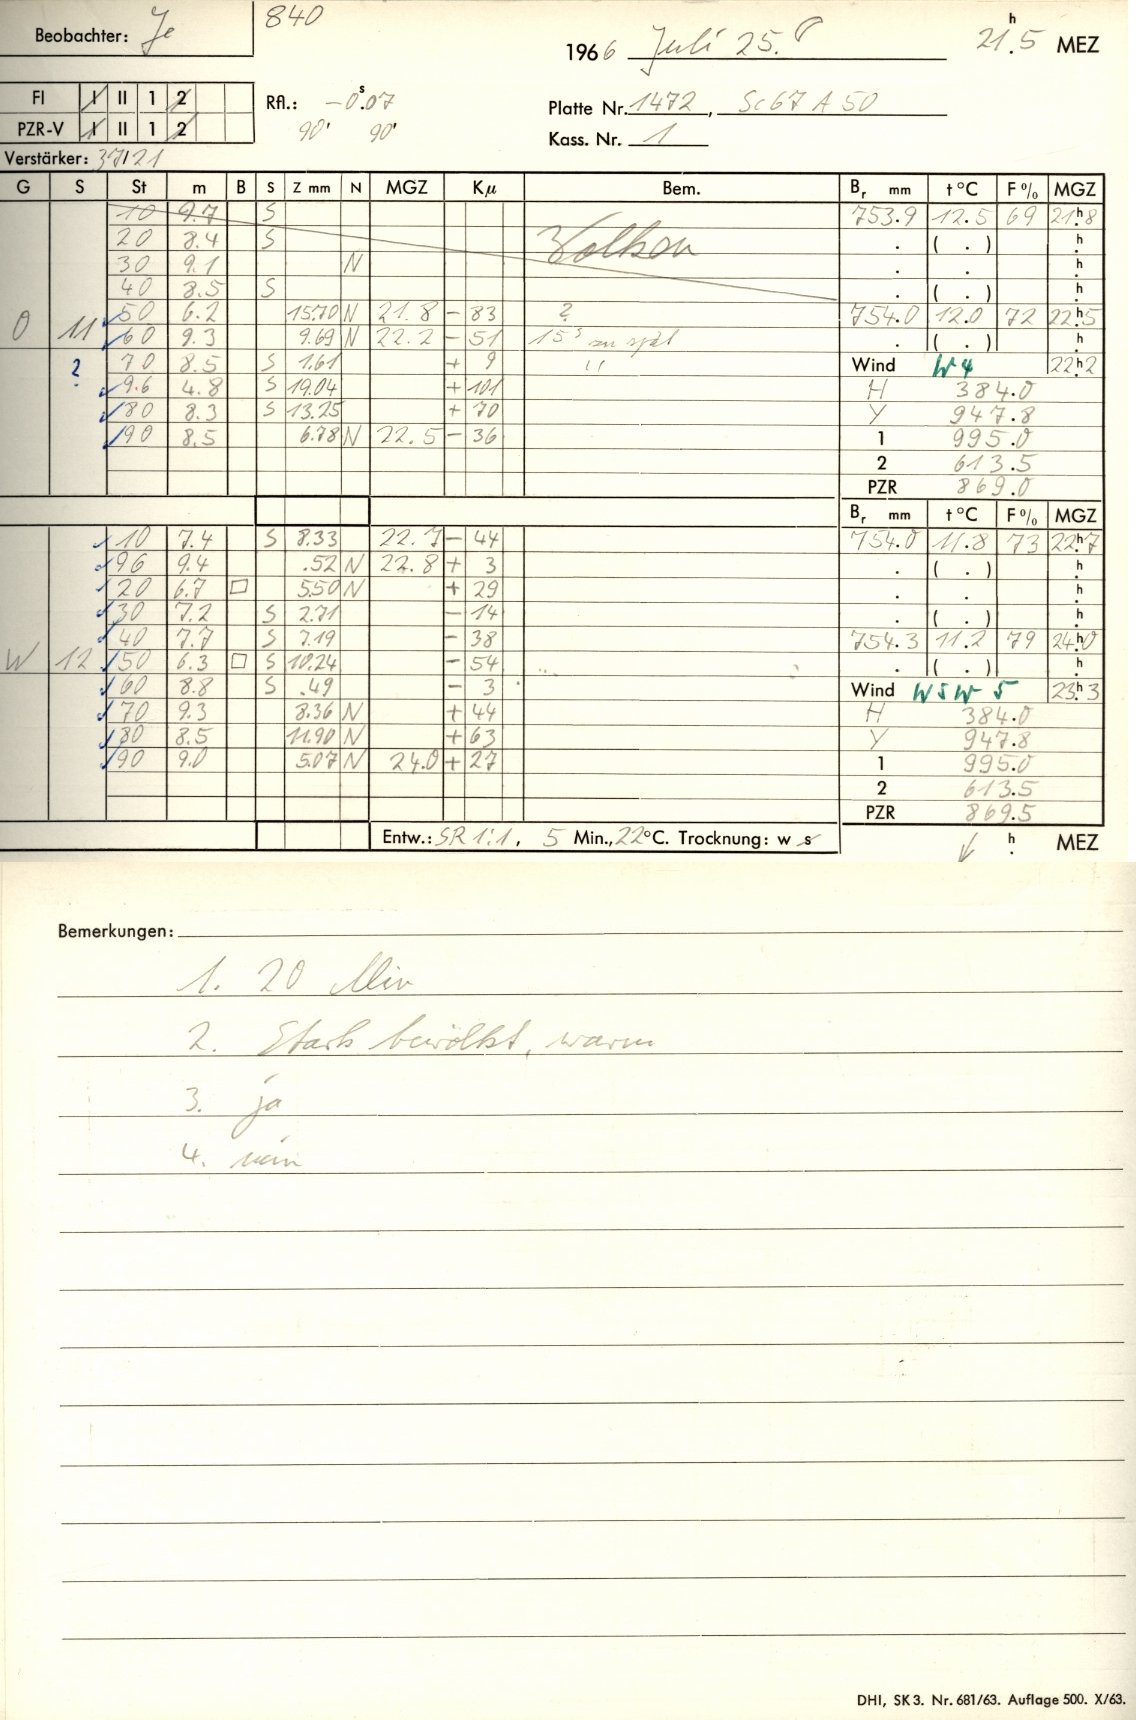 Beobachter: Je
840
1966 Juli 25. 21h.5 MEZ
FI I II 1 2
PZR-V I II 1 2
Rfl.: -0s.07
90' 90'
Platte Nr. 1472, Sc67 A 50
Kass. Nr. 1
Verstärker: 37/21
G S St m B S Z mm N MGZ Kμ Bem. Br mm t °C F % MGZ
10 9.7 S 753.9 12.5 69 21h.8
20 8.4 S Wolken . ( . ) h.
30 9.1 N . . h.
40 8.5 S . ( . ) h.
50 6.2 15.70 N 21.8 - 83 ? 754.0 12.0 72 22h.5
O 11 60 9.3 9.69 N 22.2 - 51 15s zu spät . ( . ) h.
? 70 8.5 S 1.61 + 9 " Wind W 4 22h.2
9.6 4.8 S 19.04 + 101 H 384.0
80 8.3 S 13.25 + 70 Y 947.8
90 8.5 6.78 N 22.5 - 36 1 995.0
2 613.5
PZR 869.0
Br mm t °C F % MGZ
10 7.4 S 8.33 22.7 - 44 754.0 11.8 73 22h.7
96 9.4 .52 N 22.8 + 3 . ( . ) h.
20 6.7 □ 5.50 N + 29 . . h.
30 7.2 S 2.71 - 14 . ( . ) h.
40 7.7 S 7.19 - 38 754.3 11.2 79 24h.0
W 12 50 6.3 □ S 10.24 - 54 . ( . ) h.
60 8.8 S .49 - 3 Wind WSW 5 23h.3
70 9.3 8.36 N + 44 H 384.0
80 8.5 11.90 N + 63 Y 947.8
90 9.0 5.07 N 24.0 + 27 1 995.0
2 613.5
PZR 869.5
Entw.: SR 1:1, 5 Min., 22°C. Trocknung: w s h. MEZ
Bemerkungen:
1. 20 Min
2. Stark bewölkt, warm
3. ja
4. nein
DHI, SK 3. Nr. 681/63. Auflage 500. X/63.